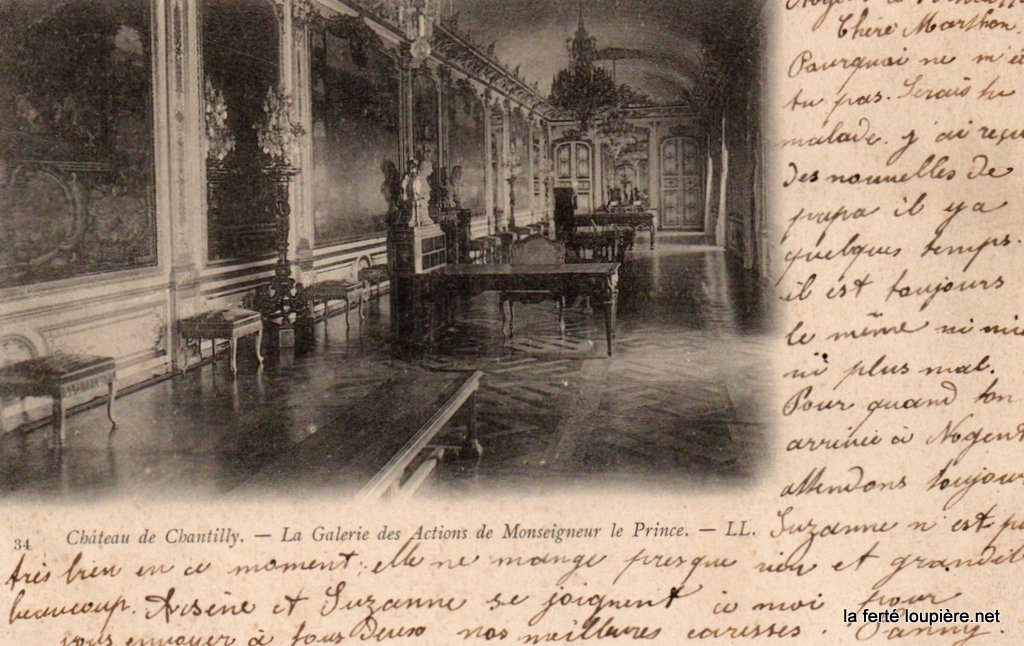 Chère Marthon,
Pourquoi ne m'é
tu pas. Serais tu
malade. j'ai reçu
des nouvelles de
papa il y a
quelques temps.
il est toujours
le même ni mie
ni plus mal.
Pour quand ton
arrivée à Nogent
attendons toujour
34 Château de Chantilly. — La Galerie des Actions de Monseigneur le Prince. — LL.
Suzanne n'est pa
très bien en ce moment; elle ne mange presque rien et grandit
beaucoup. Arsène et Suzanne se joignent à moi pour
vous envoyer à tous deux nos meilleures caresses. Fanny.
la ferté loupière.net